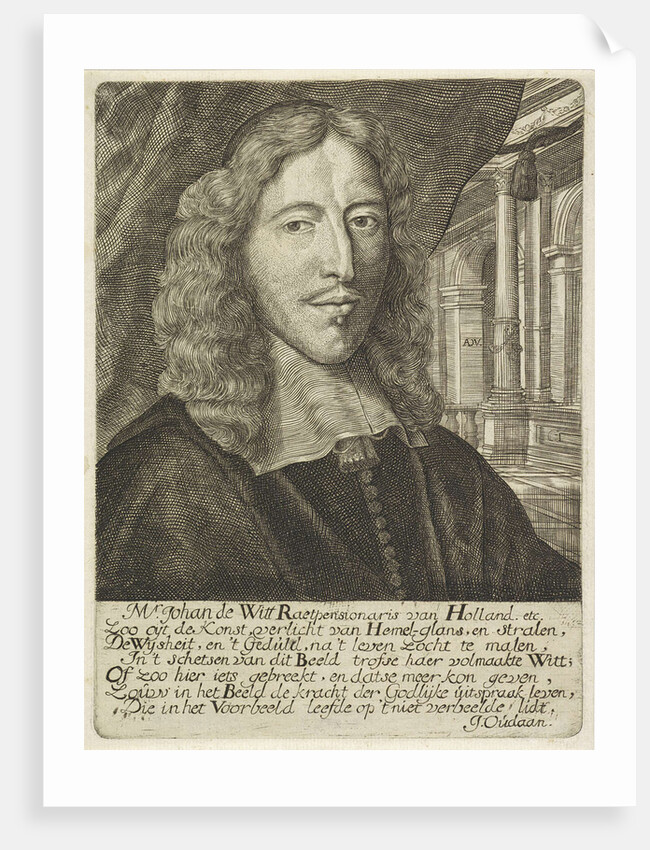 ADV.
Mr. Johan de Witt Raetpensionaris van Holland. etc.
Zoo oyt de Konst, verlicht van Hemel-glans, en stralen,
De Wysheit, en 't Gedült, na't leven zocht te malen,
In't schetsen van dit Beeld trofse haer volmaakte Witt;
Of zoo hier iets gebreekt, en datse meer kon geven,
Zoúw in het Beeld de kracht der Godlijke úitspraak leven,
Die in het Voorbeeld leefde op 't niet verbeelde lidt.
J. Oúdaan.